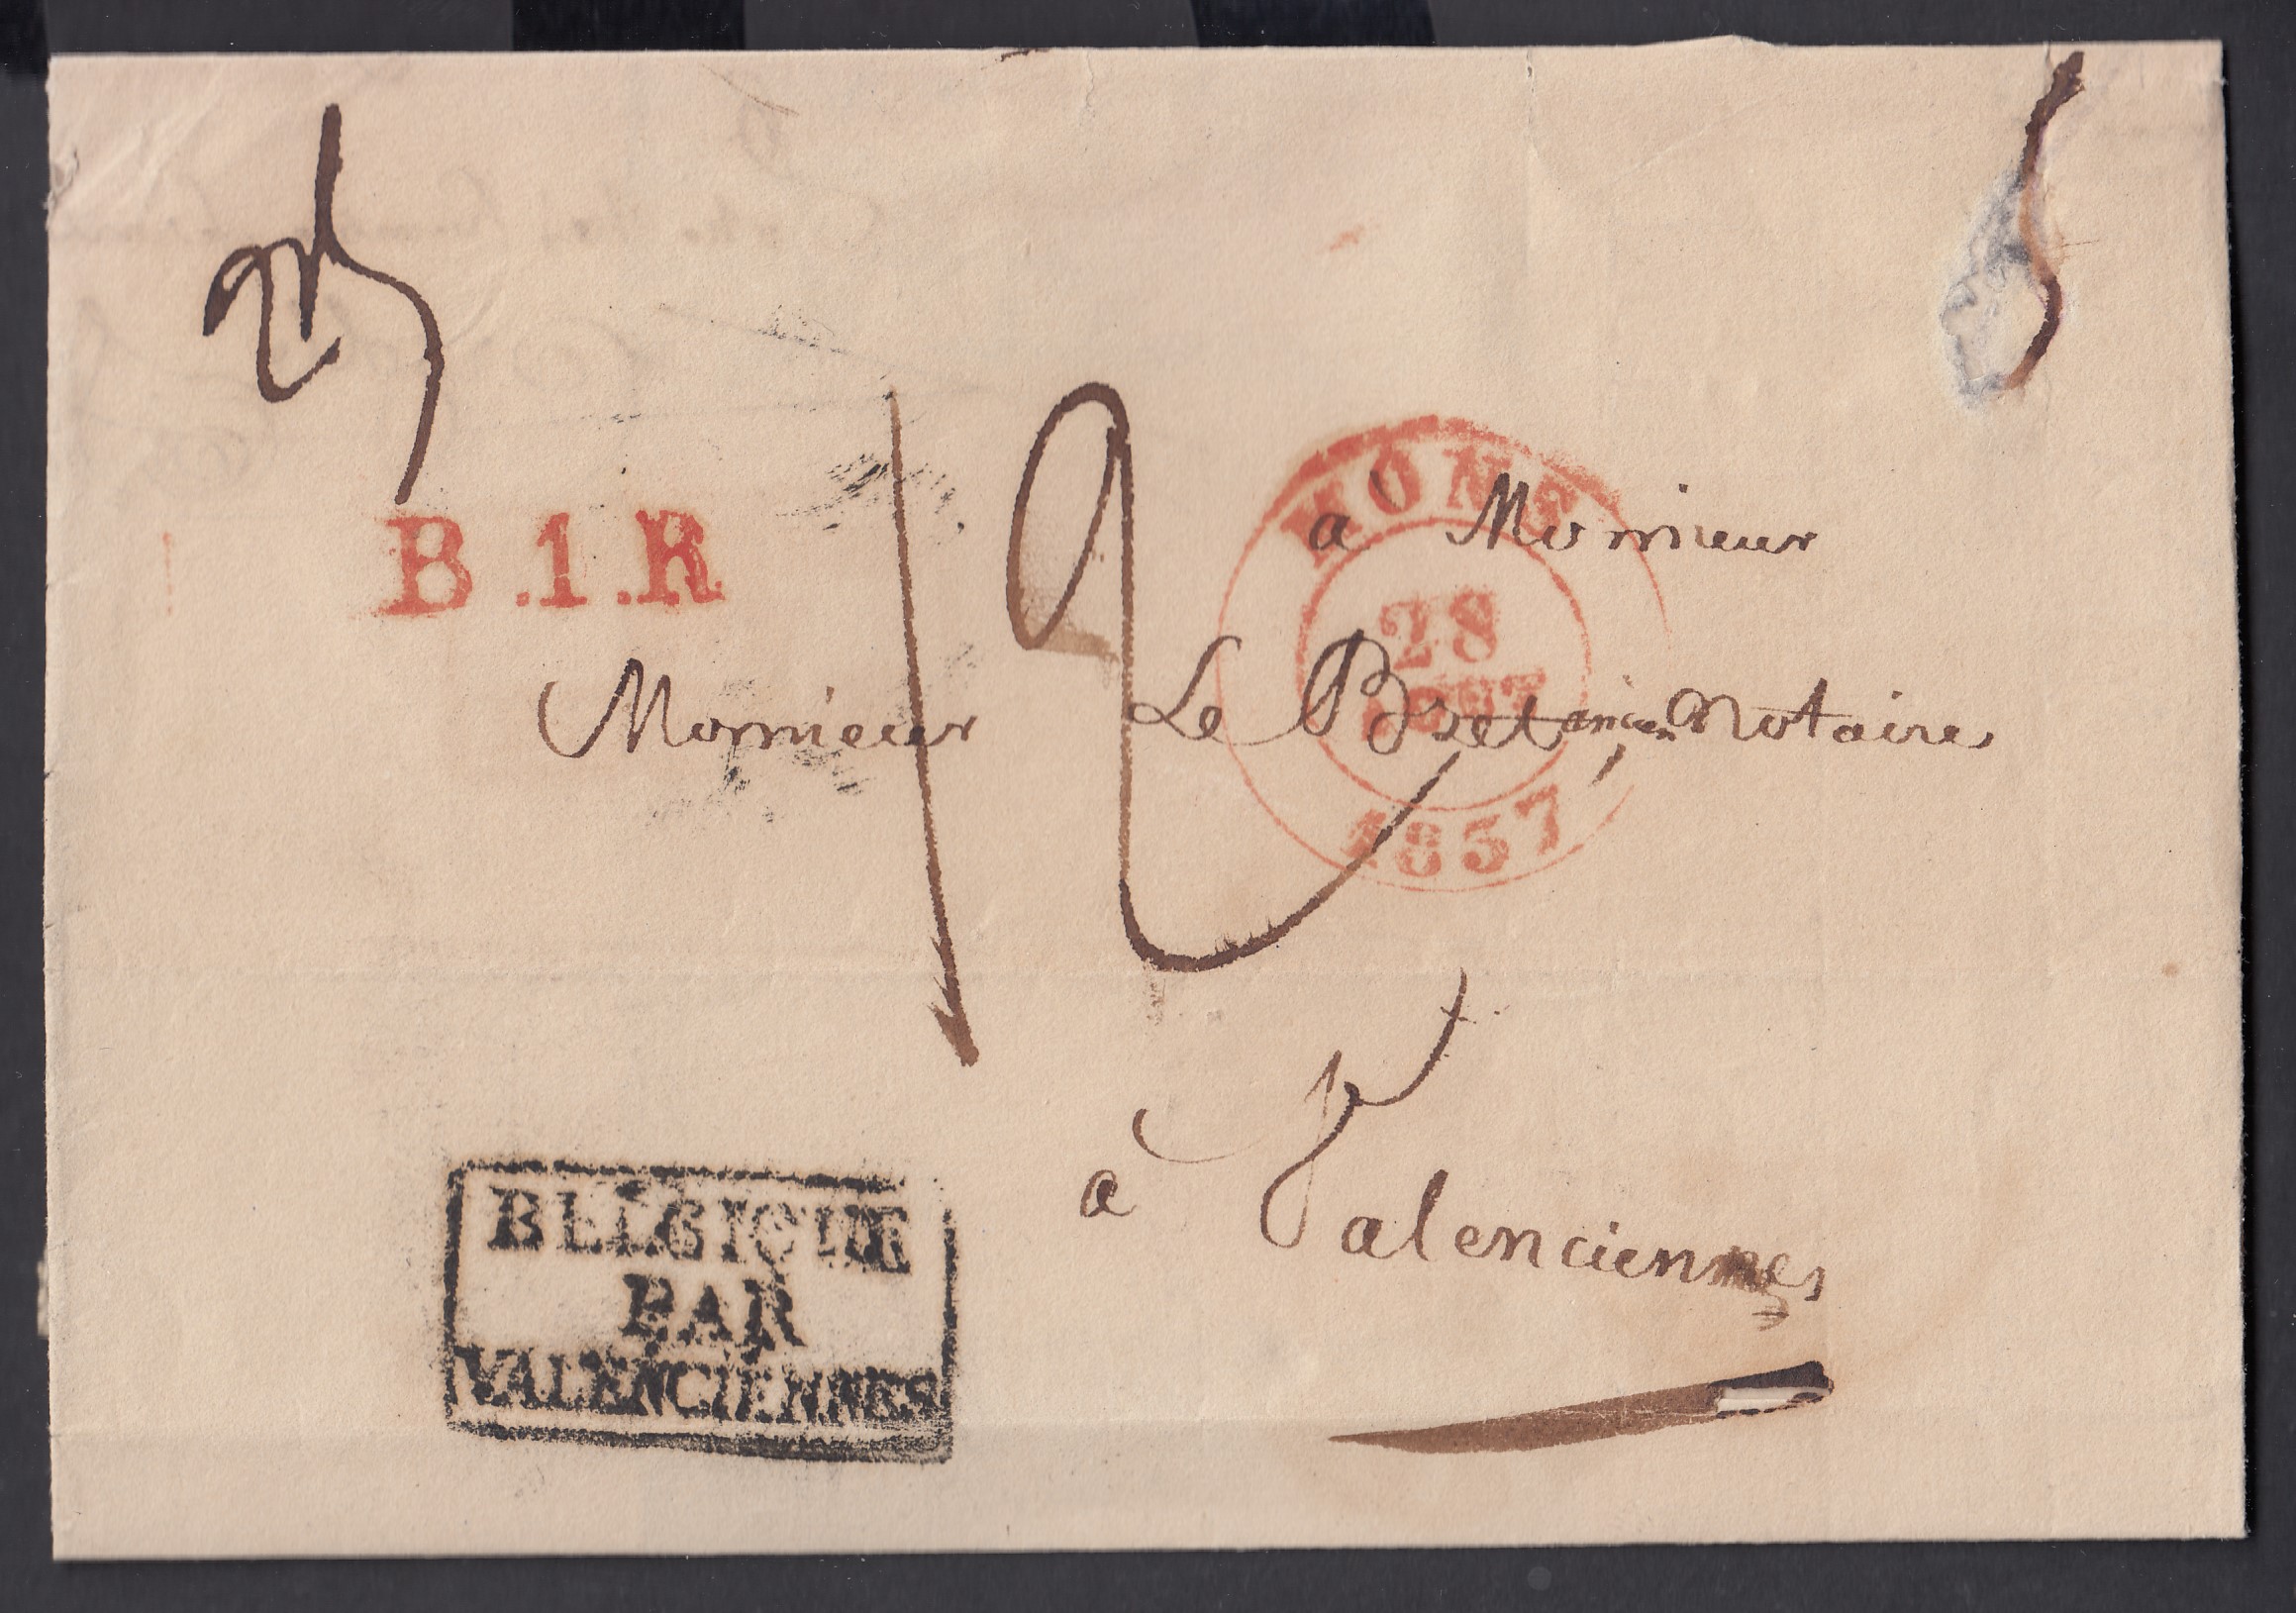 25
5
B.1.R
12
MONS
28
AOUT
1837
a Monsieur
Monsieur Le Bret, ancien Notaire
a Valenciennes
BELGIQUE
PAR
VALENCIENNES